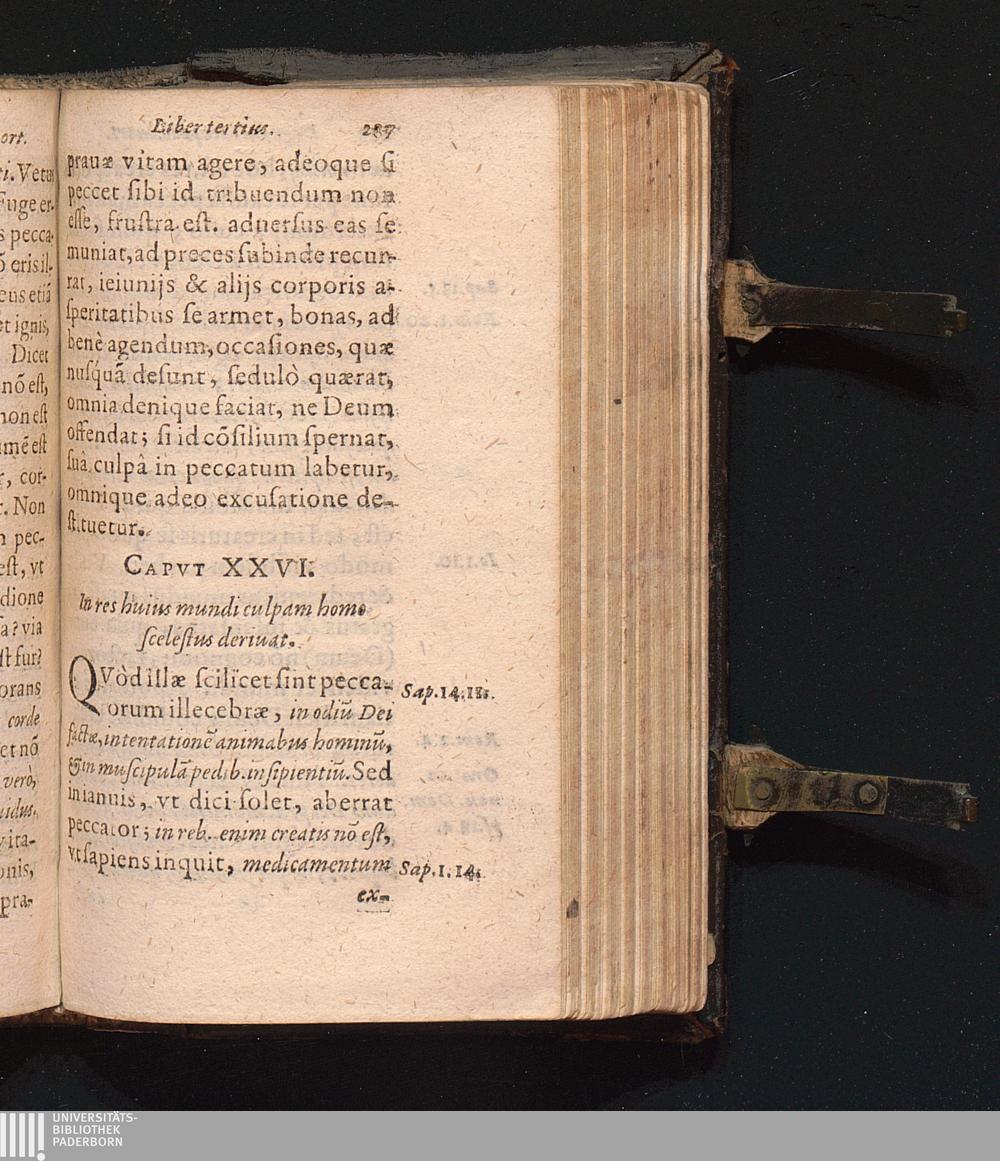 ort.
i. Vetus
Fuge er-
s pecca-
õ eris il-
eus etiã
et ignis,
Dicet
nõ est,
non est
umẽ est
r, cor-
r. Non
n pec-
est, vt
dione
sa? via
st fur?
orans
corde
et nõ
verò,
uidus,
vita-
onis,
pra-
Liber tertius. 287
prauæ vitam agere, adeoque si
peccet sibi id tribuendum non
esse, frustra est. aduersus eas se
muniat, ad preces subinde recur-
rat, ieiunijs & alijs corporis a-
speritatibus se armet, bonas, ad
benè agendum, occasiones, quæ
nusquã desunt, sedulò quærat,
omnia denique faciat, ne Deum
offendat; si id cõsilium spernat,
suâ culpâ in peccatum labetur,
omnique adeo excusatione de-
stituetur.
CAPVT XXVI.
In res huius mundi culpam homo
scelestus deriuat.
QVòd illæ scilicet sint pecca-
orum illecebræ, in odiũ Dei
factæ, in tentationẽ animabus hominũ,
& in muscipulã pedib. insipientiũ. Sed
in ianuis, vt dici solet, aberrat
peccator; in reb. enim creatis nõ est,
vt sapiens inquit, medicamentum
ex-
Sap. 14. 11.
Sap. 1. 14.
UNIVERSITÄTS-
BIBLIOTHEK
PADERBORN